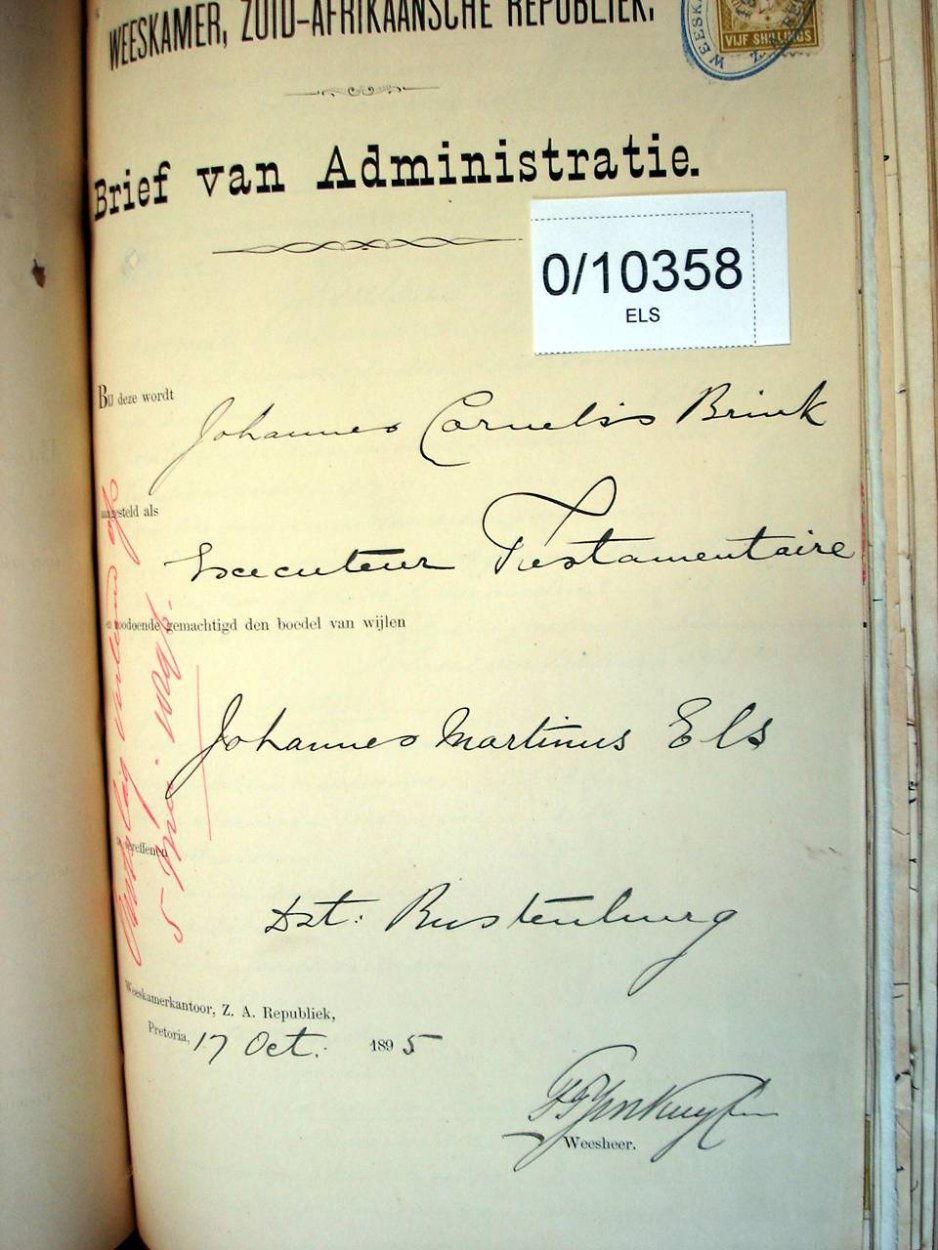 WEESKAMER, ZUID-AFRIKAANSCHE REPUBLIEK.
VIJF SHILLINGS
Brief van Administratie.
0/10358
ELS
Bij deze wordt
Johannes Cornelis Brink
aangesteld als
Executeur Testamentaire
en zoodoende gemachtigd den boedel van wijlen
Johannes Martinus Els
te vereffenen
Dst: Rustenburg
Weeskamerkantoor, Z. A. Republiek,
Pretoria, 17 Oct. 1895
Weesheer.
5 Mei